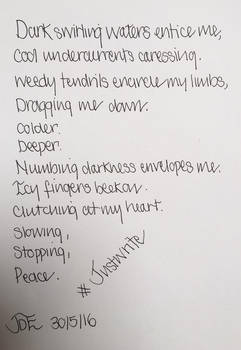 Dark swirling waters entice me,
Cool undercurrents caressing.
Weedy tendrils encircle my limbs,
Dragging me down.
Colder.
Deeper.
Numbing darkness envelopes me.
Icy fingers beckon.
Clutching at my heart.
Slowing,
Stopping,
Peace.
#Justwrite
JDE 30/5/16